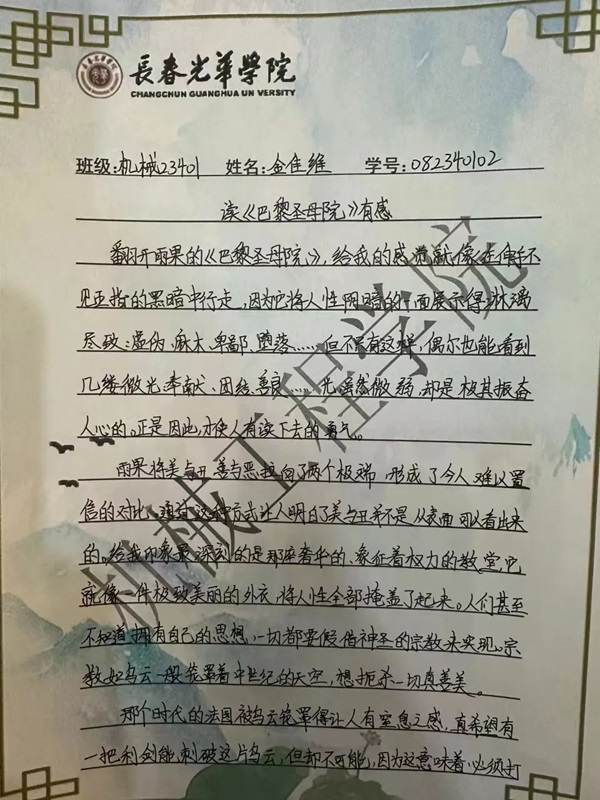 長春光華學院
CHANGCHUN GUANGHUA UN VERSITY
班级:机械23401 姓名:金佳维 学号:082340102
读《巴黎圣母院》有感
翻开雨果的《巴黎圣母院》,给我的感觉就像在伸手不
见五指的黑暗中行走,因为它将人性阴暗的一面展示得淋漓
尽致:虚伪、麻木、卑鄙、堕落……但不只有这些,偶尔也能看到
几缕微光:奉献、团结、善良……光虽然微弱,却是极其振奋
人心的。正是因此,才使人有读下去的勇气。
雨果将美与丑、善与恶拉向了两个极端,形成了令人难以置
信的对比。通过这种方式让人明白了美与丑并不是从表面可以看出来
的。给我印象最深刻的是那座奢华的、象征着权力的教堂,它
就像一件极致美丽的外衣,将人性全部掩盖了起来。人们甚至
不知道拥有自己的思想,一切都要假借神圣的宗教来实现。宗
教如乌云一般笼罩着中世纪的天空,想扼杀一切真善美。
那个时代的法国被乌云笼罩得让人有窒息之感,真希望有
一把利剑能刺破这片乌云,但却不可能,因为这意味着必须打
机械工程学院